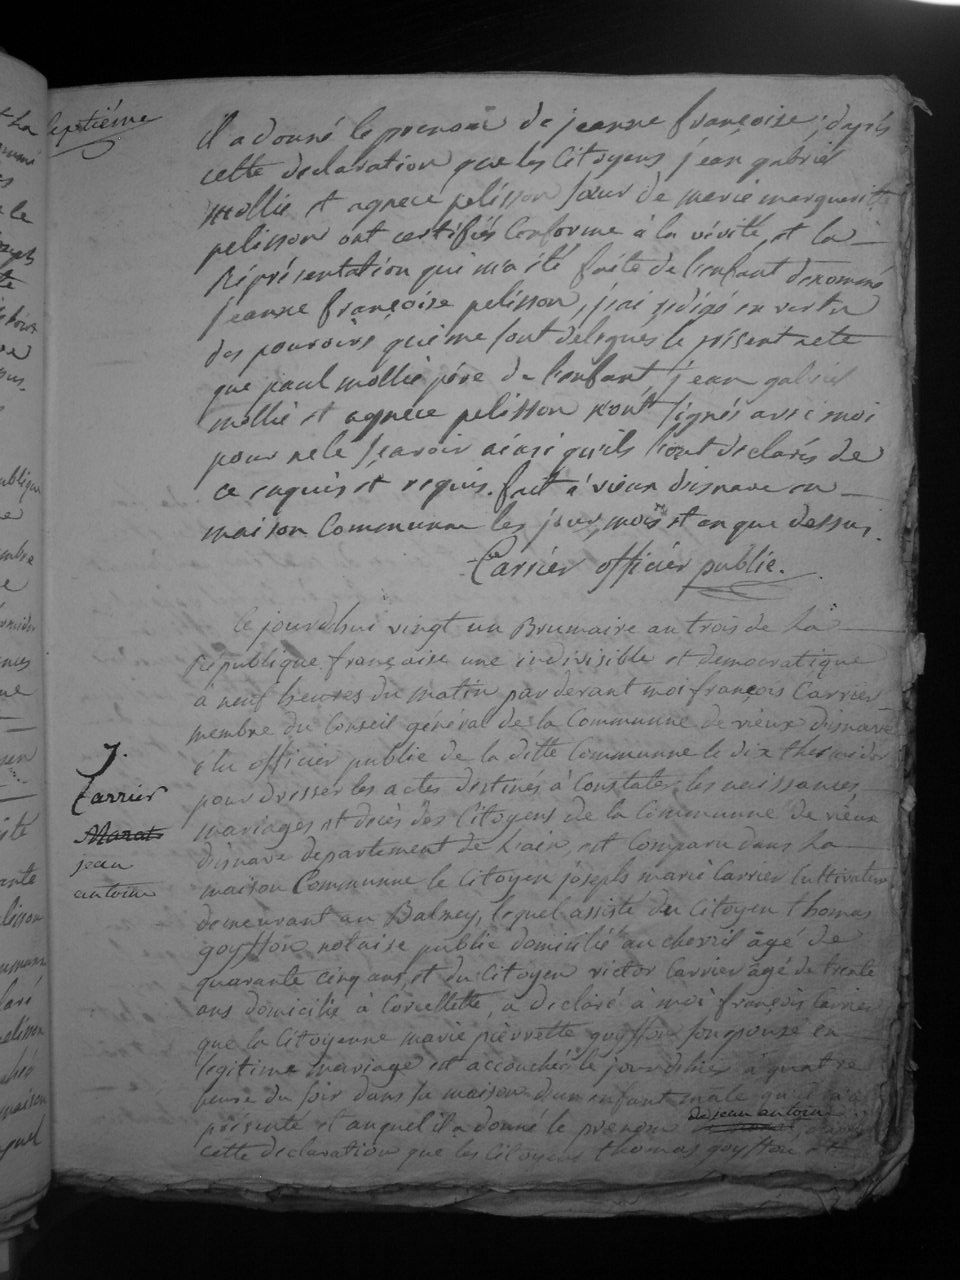 septiéme
il a donné le prenom de jeanne françoise, d'après
cette declaration que les Citoyens jean gabriel
mollie et agnece pelisson sœur de merie marguerite
pelisson ont certifiés Conforme à la vérité, et la
Représentation qui m'a été faite de l'enfant denommé
jeanne françoise pelisson, j'ai rédigé en vertu
des pouvoirs qui me sont delegués le présent acte
que paul mollie père de l'enfant, jean gabriel
mollie et agnece pelisson n'ont signés avec moi
pour ne le sçavoir ainsi qu'ils l'ont declarés de
ce enquis et requis. fait à vieux disnave en
maison Communne les jour, mois et an que dessus.
Carrier officier public.
Ce jourdhui vingt un Brumaire an trois de la
République française une indivisible et democratique
à neuf heures du matin par devant moi françois Carrier
membre du Conseil général de la Communne de vieux disnave
élu officier public de la ditte Communne le dix thermidor
pour dresser les actes destinés à Constater les naissances
mariages et décès des Citoyens de la Communne de vieux
disnave departement de L'ain, est Comparu dans la
maison Communne le Citoyen joseph marie Carrier Cultivateur
demeurant au Balmey, lequel assisté du Citoyen thomas
goyffon notaire public domicilié au chevril âgé de
quarante cinq ans, et du Citoyen victor Carrier âgé de trente
ans domicilié à Corcellette, a declaré à moi françois Carrier
que la Citoyenne marie pierrette goyffon son epouse en
legitime mariage est accouchée le jourd'hier à quatre
heure du soir dans sa maison d'un enfant mâle qu'il m'a
présenté et auquel il a donné le prenom de jean antoine d'après
cette declaration que les Citoyens thomas goyffon et
J.
Carrier
Marat
jean
antoine